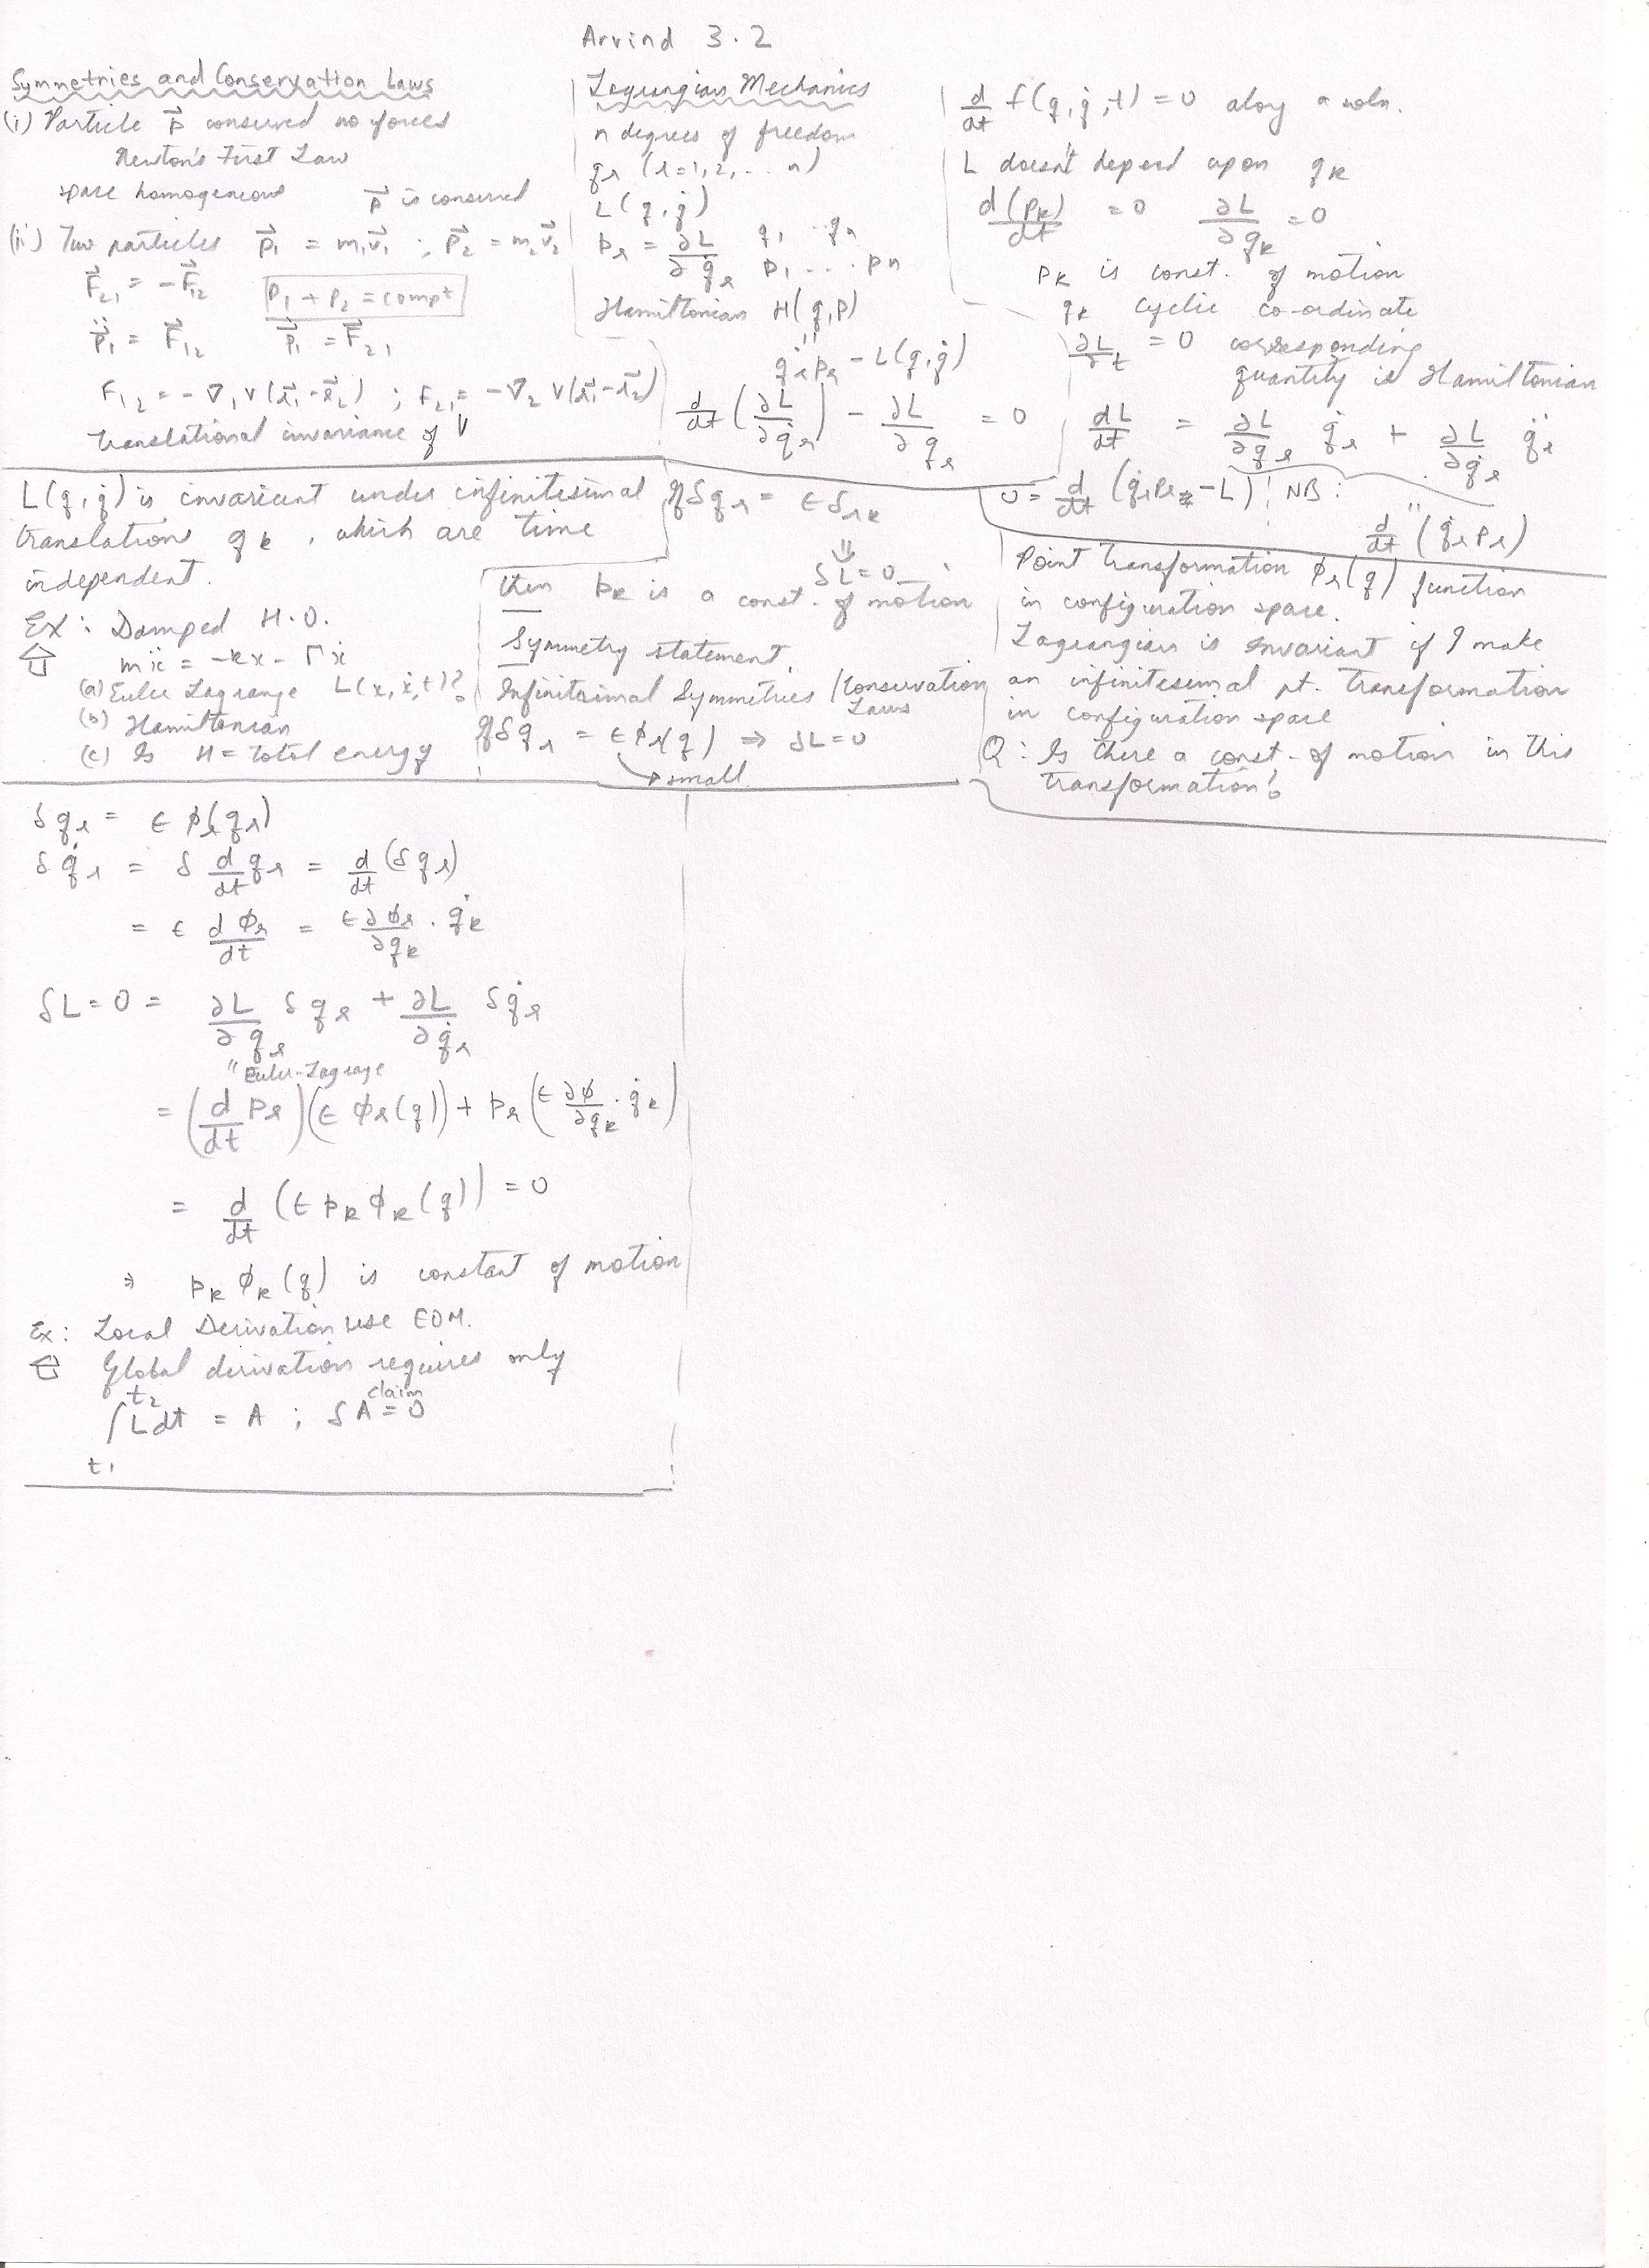 Arvind 3.2
Symmetries and Conservation Laws
(i) Particle p⃗ conserved no forces
Newton's First Law
space homogeneous p⃗ is conserved
(ii) Two particles p⃗₁ = m₁v⃗₁ ; p⃗₂ = m₂v⃗₂
F⃗₂₁ = -F⃗₁₂ P₁ + P₂ = compt
p⃗₁ = F⃗₁₂ p⃗₁ = F⃗₂₁
F₁₂ = -∇₁V(r⃗₁-r⃗₂) ; F₂₁ = -∇₂V(r⃗₁-r⃗₂)
Translational invariance of V
Lagrangian Mechanics
n degrees of freedom
q_r (r=1,2,... n)
L(q,q̇)
p_r = ∂L/∂q̇_r q₁ .. q_n
p₁ .... p_n
Hamiltonian H(q,p)
"
q̇_r p_r - L(q,q̇)
d/dt (∂L/∂q̇_r) - ∂L/∂q_r = 0
d/dt f(q,q̇,t) = 0 along a soln.
L doesn't depend upon q_k
d(p_k)/dt = 0 ∂L/∂q_k = 0
p_k is const. of motion
q_k cyclic co-ordinate
∂L/∂t = 0 corresponding
quantity is Hamiltonian
dL/dt = ∂L/∂q_r q̇_r + ∂L/∂q̇_r q̈_r
0 = d/dt (q̇_r p_r - L) NB:
"
d/dt (q̇_r p_r)
L(q,q̇) is invariant under infinitesimal
translations q_k , which are time
independent.
Ex: Damped H.O.
mẍ = -kx - Γẋ
(a) Euler Lagrange L(x,ẋ,t)?
(b) Hamiltonian
(c) Is H = Total energy
If δq_r = εδ_rk
⇓
δL = 0
then p_k is a const. of motion
Symmetry statement.
Infinitsimal Symmetries / Conservation
Laws
If δq_r = εφ_r(q) ⇒ δL = 0
small
Point Transformation φ_r(q) function
in configuration space.
Lagrangian is invariant if I make
an infinitesimal pt. transformation
in configuration space
Q: Is there a const. of motion in this
transformation?
δq_r = ε φ_r(q_r)
δq̇_r = δ d/dt q_r = d/dt (δq_r)
= ε dφ_r/dt = ε ∂φ_r/∂q_k . q̇_k
δL = 0 = ∂L/∂q_r δq_r + ∂L/∂q̇_r δq̇_r
" Euler-Lagrage
= (d/dt p_r)(ε φ_r(q)) + p_r (ε ∂φ/∂q_k . q̇_k)
= d/dt (ε p_k φ_k(q)) = 0
⇒ p_k φ_k(q) is constant of motion
Ex: Local Derivation use EOM.
Global derivation requires only
claim
∫ₜ₁ᵗ² L dt = A ; δA = 0